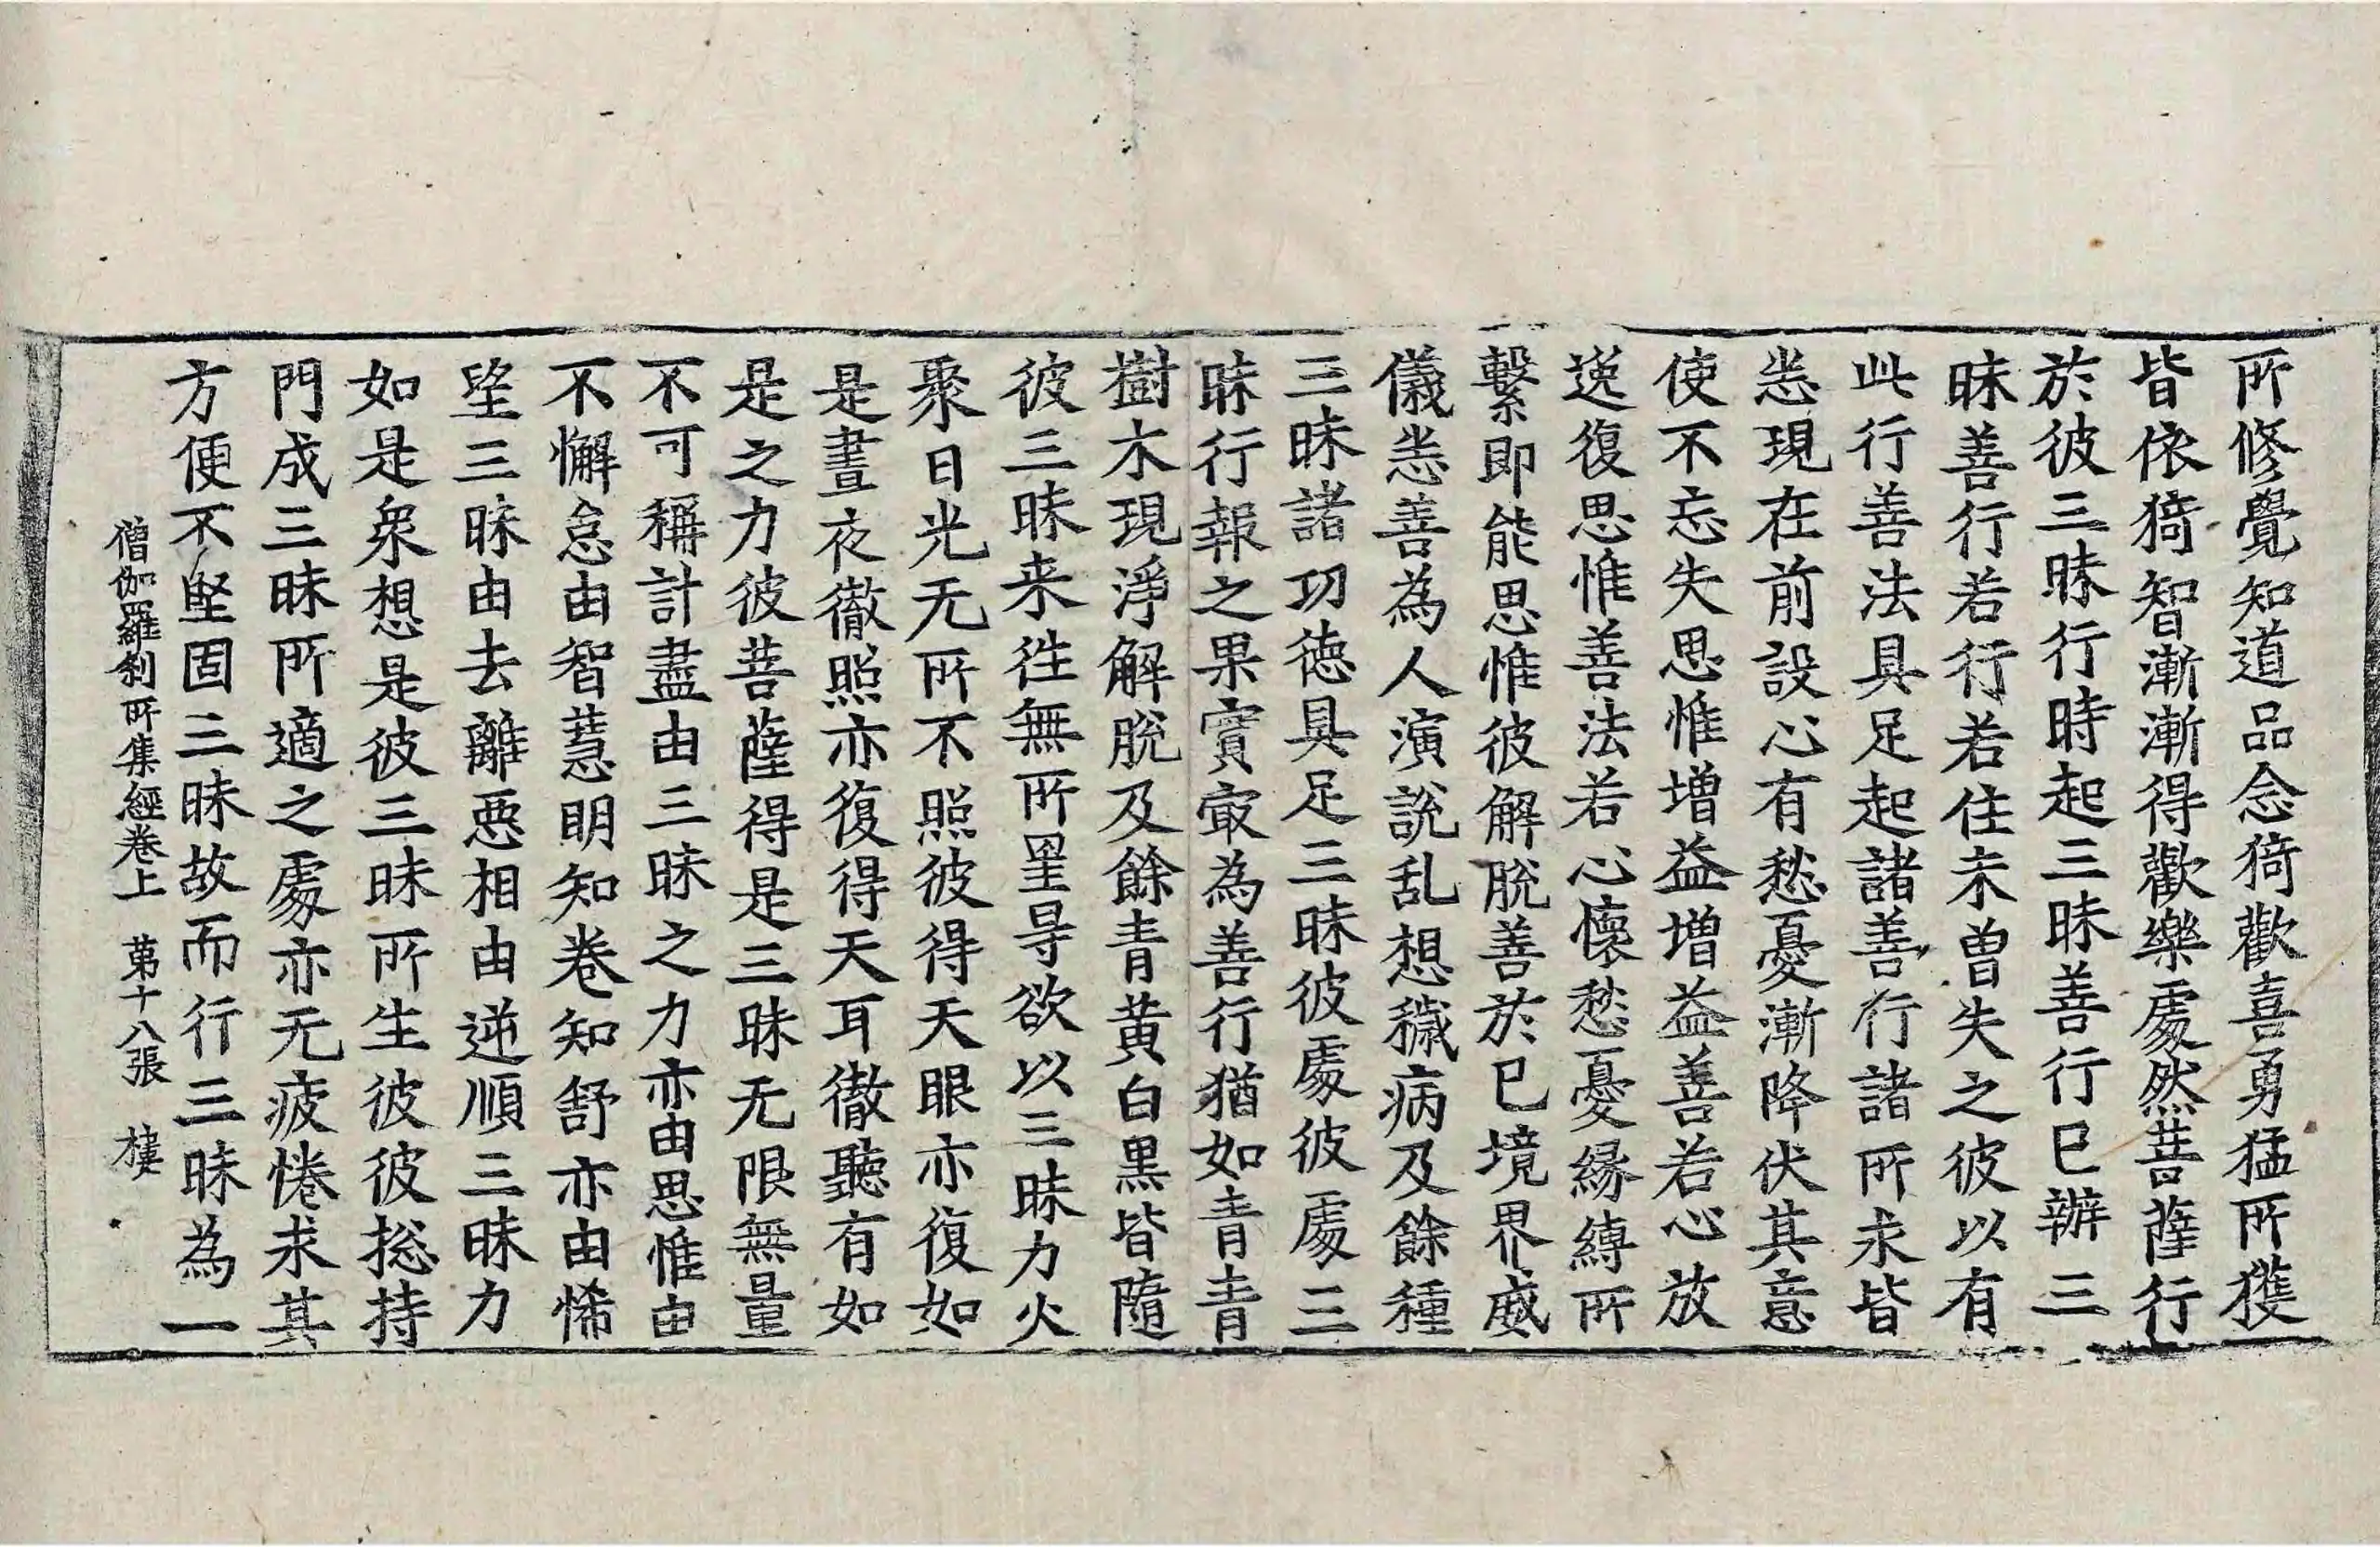 所修覺知道品念猗歡喜勇猛所獲
皆依猗智漸漸得歡樂處然菩薩行
於彼三昧行時起三昧善行已辦三
昧善行若行若住未曾失之彼以有
此行善法具足起諸善行諸所求皆
悉現在前設心有愁憂漸降伏其意
使不忘失思惟增益增益善若心放
逸復思惟善法若心懷愁憂緣縛所
繫即能思惟彼解脫善於已境界威
儀悉善為人演說乱想穢病及餘種
三昧諸功德具足三昧彼處彼處三
昧行報之果實㝡為善行猶如青青
樹木現淨解脫及餘青黃白黑皆隨
彼三昧来往無所罣㝵欲以三昧力火
聚日光无所不照彼得天眼亦復如
是晝夜徹照亦復得天耳徹聽有如
是之力彼菩薩得是三昧无限無量
不可稱計盡由三昧之力亦由思惟由
不懈怠由智慧明知卷知舒亦由悕
望三昧由去離惡相由逆順三昧力
如是眾想是彼三昧所生彼彼捴持
門成三昧所適之處亦无疲惓求其
方便不堅固三昧故而行三昧為一
僧伽羅剎所集經卷上 第十八張 樓